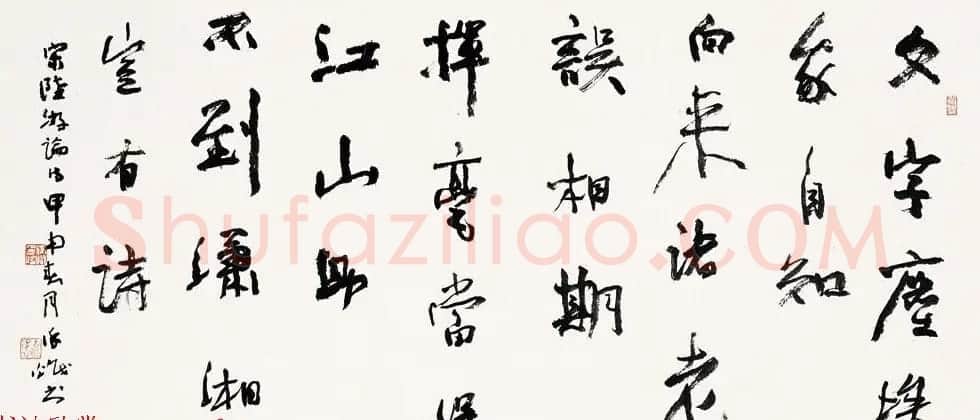 文字塵埃
我自知
向来諸老
誤相期
揮毫當得
江山助
不到瀟湘
豈有詩
宋陸游論詩甲申春月
Shufaziliao.COM